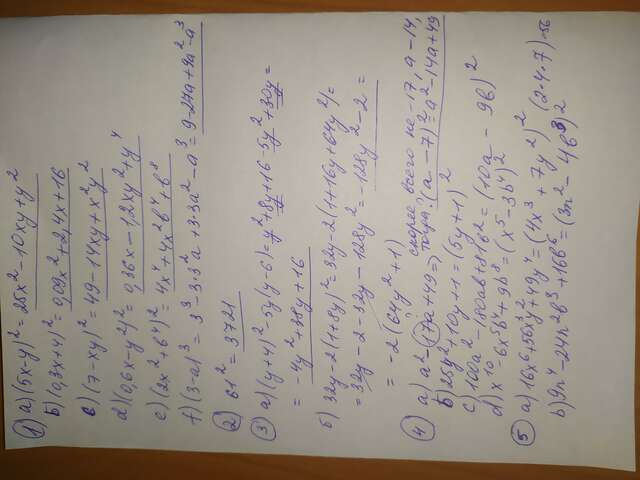 ① a) (5x-y)² = 25x² - 10xy + y²
б) (0,3x+4)² = 0,09x² + 2,4x + 16
в) (7-xy)² = 49 - 14xy + x²y²
d) (0,6x-y²)² = 0,36x - 1,2xy² + y⁴
e) (2x²+b⁴)² = 4x⁴ + 4x²b⁴ + b⁸
f) (3-a)³ = 3³ - 3·3²a + 3·3a² - a³ = 9 - 27a + 9a² - a³
② 61² = 3721
③ a) (y+4)² - 5y(y-6) = y² + 8y + 16 - 5y² + 30y =
= -4y² + 38y + 16
б) 32y - 2(1+8y)² = 32y - 2(1+16y+64y²) =
= 32y - 2 - 32y - 128y² = -128y² - 2 =
= -2(64y² + 1)
скорее всего не -17, а -14,
④ a) a² - 17a + 49 => тогда: (a-7)² = a² - 14a + 49
б) 25y² + 10y + 1 = (5y+1)²
c) 100a² - 180ab + 81b² = (10a - 9b)²
d) x¹⁰ 6x⁵b⁴ + 9b⁸ = (x⁵ - 3b⁴)²
⑤ a) 16x⁶ + 56x³y² + 49y⁴ = (4x³ + 7y²)² (2·4·7)=56
b) 9n⁴ - 24n²b³ + 16b⁶ = (3n² - 4b³)²